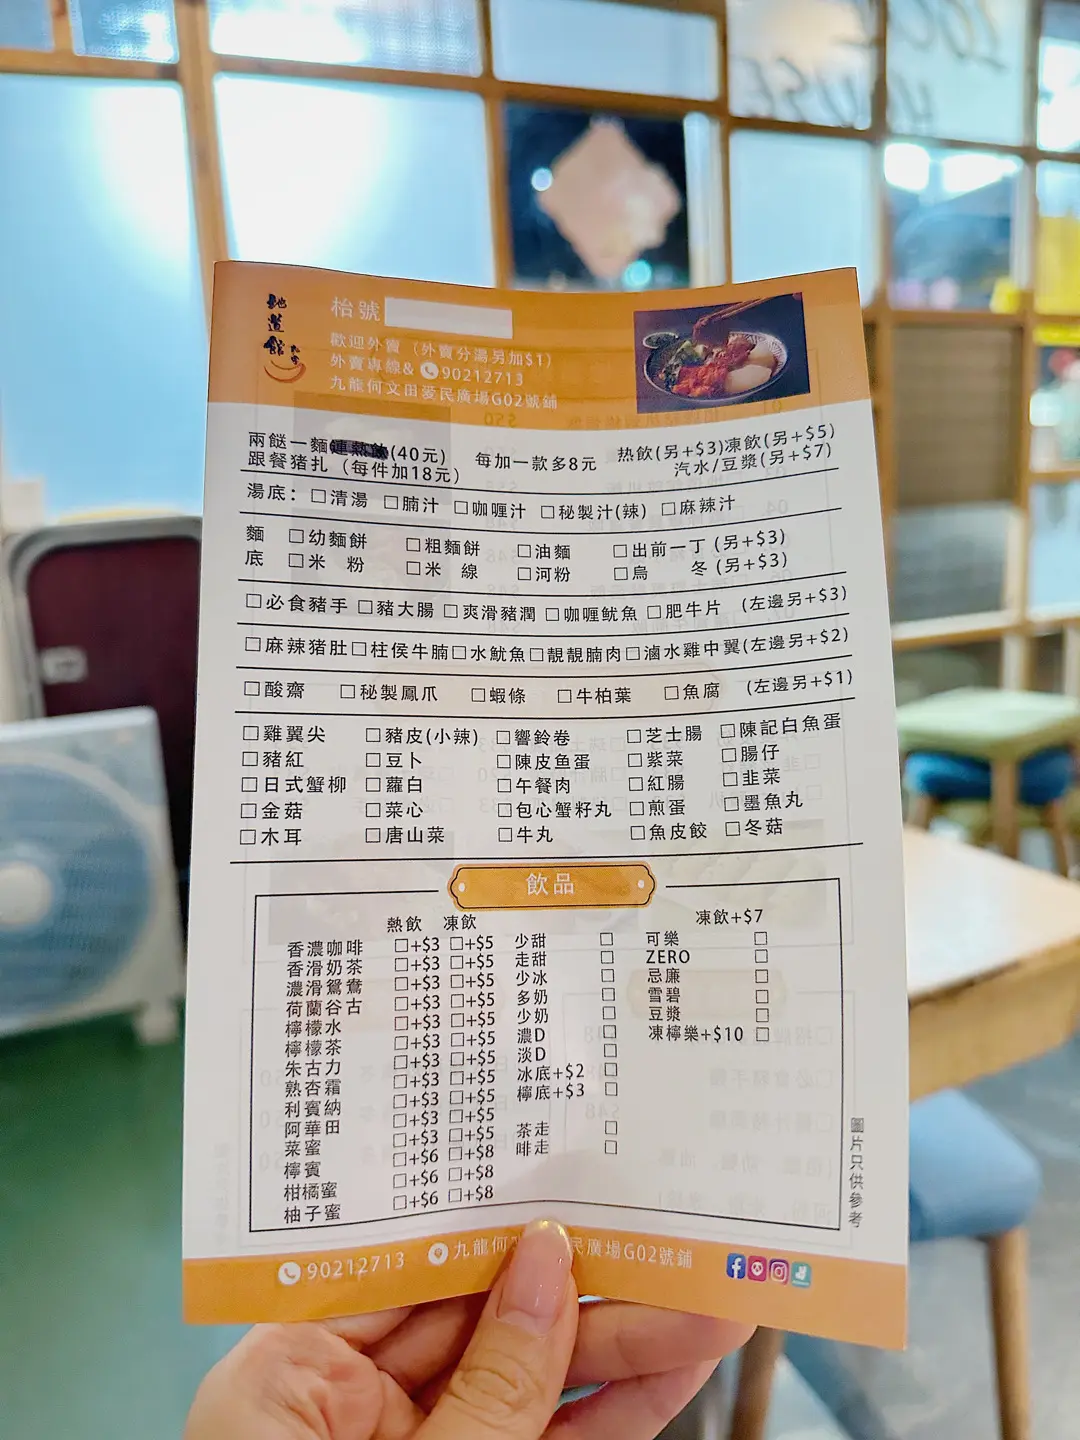 LOCAL
HOUSE
地道館
枱號
歡迎外賣（外賣分湯另加$1）
外賣專線& 90212713
九龍何文田愛民廣場G02號鋪
兩餸一麵 (40元) 每加一款多8元 热飲(另+$3)凍飲(另+$5)
跟餐猪扒（每件加18元） 汽水/豆漿(另+$7)
湯底：☐清湯 ☐腩汁 ☐咖喱汁 ☐秘製汁(辣) ☐麻辣汁
麵 ☐幼麵餅 ☐粗麵餅 ☐油麵 ☐出前一丁 (另+$3)
底 ☐米 粉 ☐米 線 ☐河粉 ☐烏 冬 (另+$3)
☐必食豬手 ☐豬大腸 ☐爽滑豬潤 ☐咖喱魷魚 ☐肥牛片 (左邊另+$3)
☐麻辣猪肚 ☐柱侯牛腩 ☐水魷魚 ☐靚靚腩肉 ☐滷水雞中翼 (左邊另+$2)
☐酸齋 ☐秘製鳳爪 ☐蝦條 ☐牛柏葉 ☐魚腐 (左邊另+$1)
☐雞翼尖 ☐豬皮(小辣) ☐響鈴卷 ☐芝士腸 ☐陳記白魚蛋
☐豬紅 ☐豆卜 ☐陳皮鱼蛋 ☐紫菜 ☐腸仔
☐日式蟹柳 ☐蘿白 ☐午餐肉 ☐紅腸 ☐韭菜
☐金菇 ☐菜心 ☐包心蟹籽丸 ☐煎蛋 ☐墨魚丸
☐木耳 ☐唐山菜 ☐牛丸 ☐魚皮餃 ☐冬菇
飲品
熱飲 凍飲
香濃咖啡 ☐+$3 ☐+$5
香滑奶茶 ☐+$3 ☐+$5
濃滑鴛鴦 ☐+$3 ☐+$5
荷蘭谷古 ☐+$3 ☐+$5
檸檬水 ☐+$3 ☐+$5
檸檬茶 ☐+$3 ☐+$5
朱古力 ☐+$3 ☐+$5
熟杏霜 ☐+$3 ☐+$5
利賓納 ☐+$3 ☐+$5
阿華田 ☐+$3 ☐+$5
菜蜜 ☐+$3 ☐+$5
檸賓 ☐+$6 ☐+$8
柑橘蜜 ☐+$6 ☐+$8
柚子蜜 ☐+$6 ☐+$8
少甜 ☐
走甜 ☐
少冰 ☐
多奶 ☐
少奶 ☐
濃D ☐
淡D ☐
冰底+$2 ☐
檸底+$3 ☐
茶走 ☐
啡走 ☐
凍飲+$7
可樂 ☐
ZERO ☐
忌廉 ☐
雪碧 ☐
豆漿 ☐
凍檸樂+$10 ☐
圖片只供參考
90212713 九龍何 民廣場G02號鋪